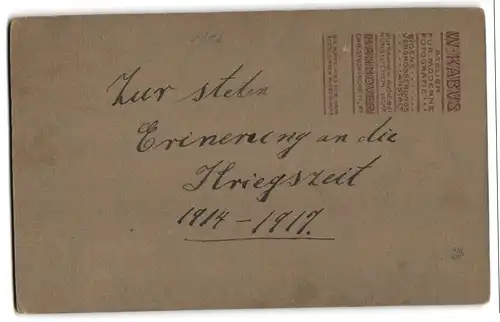 Zur steten
Erinerung an die
Kriegszeit
1914 - 1917.
W. KABUS
ATELIER
FÜR MODERNE
FOTOGRAFIE
HANNOVER